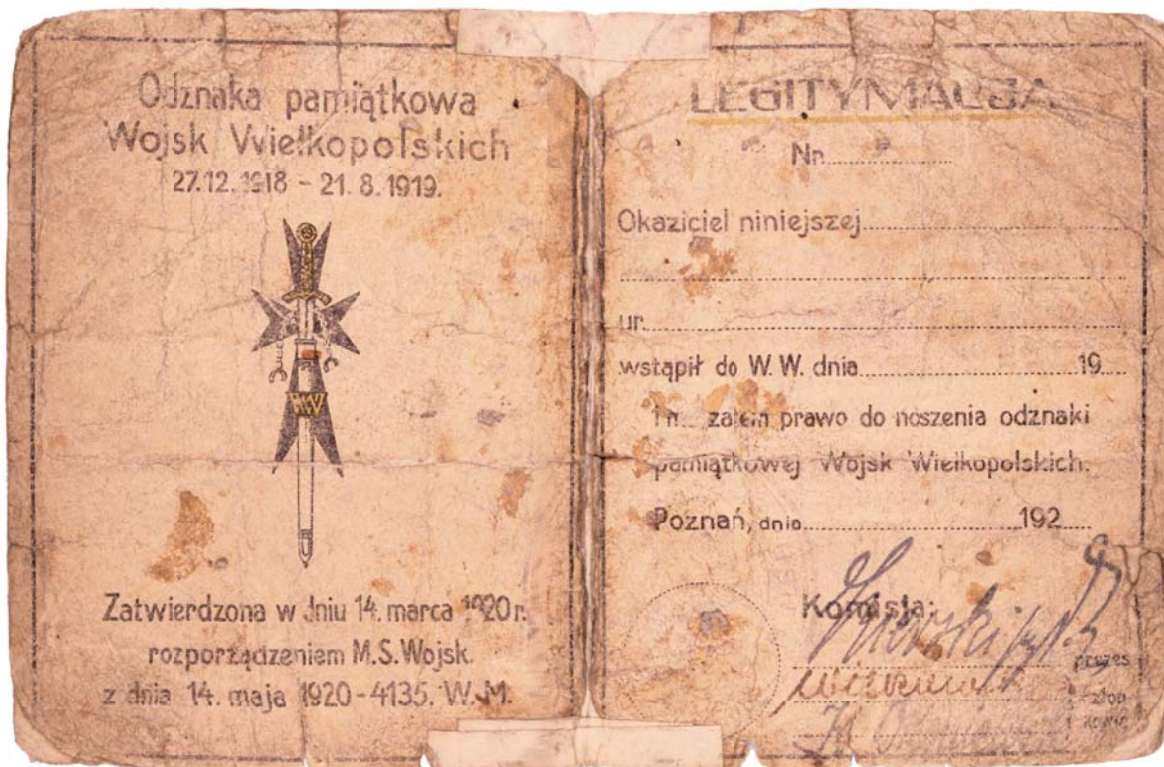 Odznaka pamiątkowa
Wojsk Wielkopolskich
27.12.1918 - 21.8.1919.
WW
Zatwierdzona w dniu 14. marca 1920 r.
rozporządzeniem M.S.Wojsk.
z dnia 14. maja 1920-4135. W.M.
LEGITYMACJA
Nr
Okaziciel niniejszej
ur.
wstąpił do W. W. dnia 19
i ma zatem prawo do noszenia odznaki
pamiątkowej Wojsk Wielkopolskich.
Poznań, dnia 192
Komisja:
prezes
człon
kowie